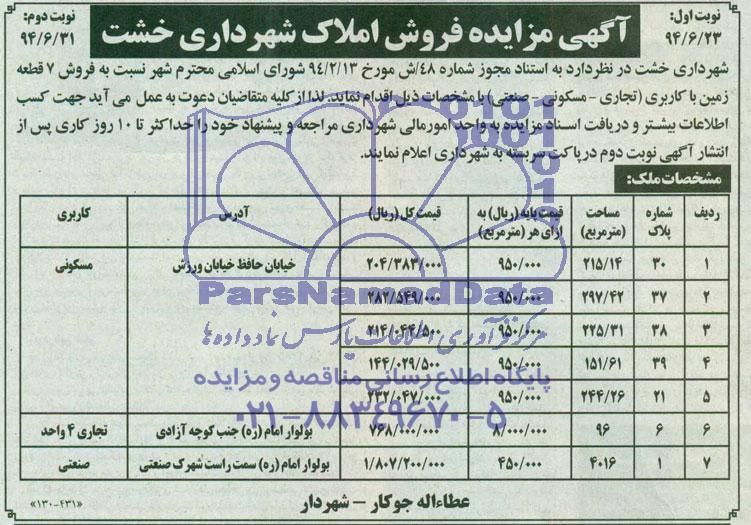 نوبت اول:
۹۴/۶/۲۳
آگهی مزایده فروش املاک شهرداری خشت
نوبت دوم:
۹۴/۶/۳۱
شهرداری خشت در نظر دارد به استناد مجوز شماره ۴۸/ش مورخ ۹۴/۲/۱۳ شورای اسلامی محترم شهر نسبت به فروش ۷ قطعه
زمین با کاربری (تجاری - مسکونی - صنعتی) با مشخصات ذیل اقدام نماید. لذا از کلیه متقاضیان دعوت به عمل می آید جهت کسب
اطلاعات بیشتر و دریافت اسناد مزایده به واحد امورمالی شهرداری مراجعه و پیشنهاد خود را حداکثر تا ۱۰ روز کاری پس از
انتشار آگهی نوبت دوم در پاکت سربسته به شهرداری اعلام نمایند.
مشخصات ملک:
ردیف شماره پلاک مساحت (مترمربع) قیمت پایه (ریال) به ازای هر (مترمربع) قیمت کل (ریال) آدرس کاربری
۱ ۳۰ ۲۱۵/۱۴ ۹۵۰/۰۰۰ ۲۰۴/۳۸۳/۰۰۰ خیابان حافظ خیابان ورزش مسکونی
۲ ۳۷ ۲۹۷/۴۲ ۹۵۰/۰۰۰ ۲۸۲/۵۴۹/۰۰۰
۳ ۳۸ ۲۲۵/۳۱ ۹۵۰/۰۰۰ ۲۱۴/۰۴۴/۵۰۰
۴ ۳۹ ۱۵۱/۶۱ ۹۵۰/۰۰۰ ۱۴۴/۰۲۹/۵۰۰
۵ ۲۱ ۲۴۴/۲۶ ۹۵۰/۰۰۰ ۲۳۲/۰۴۷/۰۰۰
۶ ۶ ۹۶ ۸/۰۰۰/۰۰۰ ۷۶۸/۰۰۰/۰۰۰ بولوار امام (ره) جنب کوچه آزادی تجاری ۴ واحد
۷ ۱ ۴۰۱۶ ۴۵۰/۰۰۰ ۱/۸۰۷/۲۰۰/۰۰۰ بولوار امام (ره) سمت راست شهرک صنعتی صنعتی
عطاءاله جوکار - شهردار
«۱۳۰-۴۳۱»
ParsNamadData
مرکز فرآوری اطلاعات پارس نماد داده ها
پایگاه اطلاع رسانی مناقصه و مزایده
۰۲۱-۸۸۳۴۹۶۷۰-۵